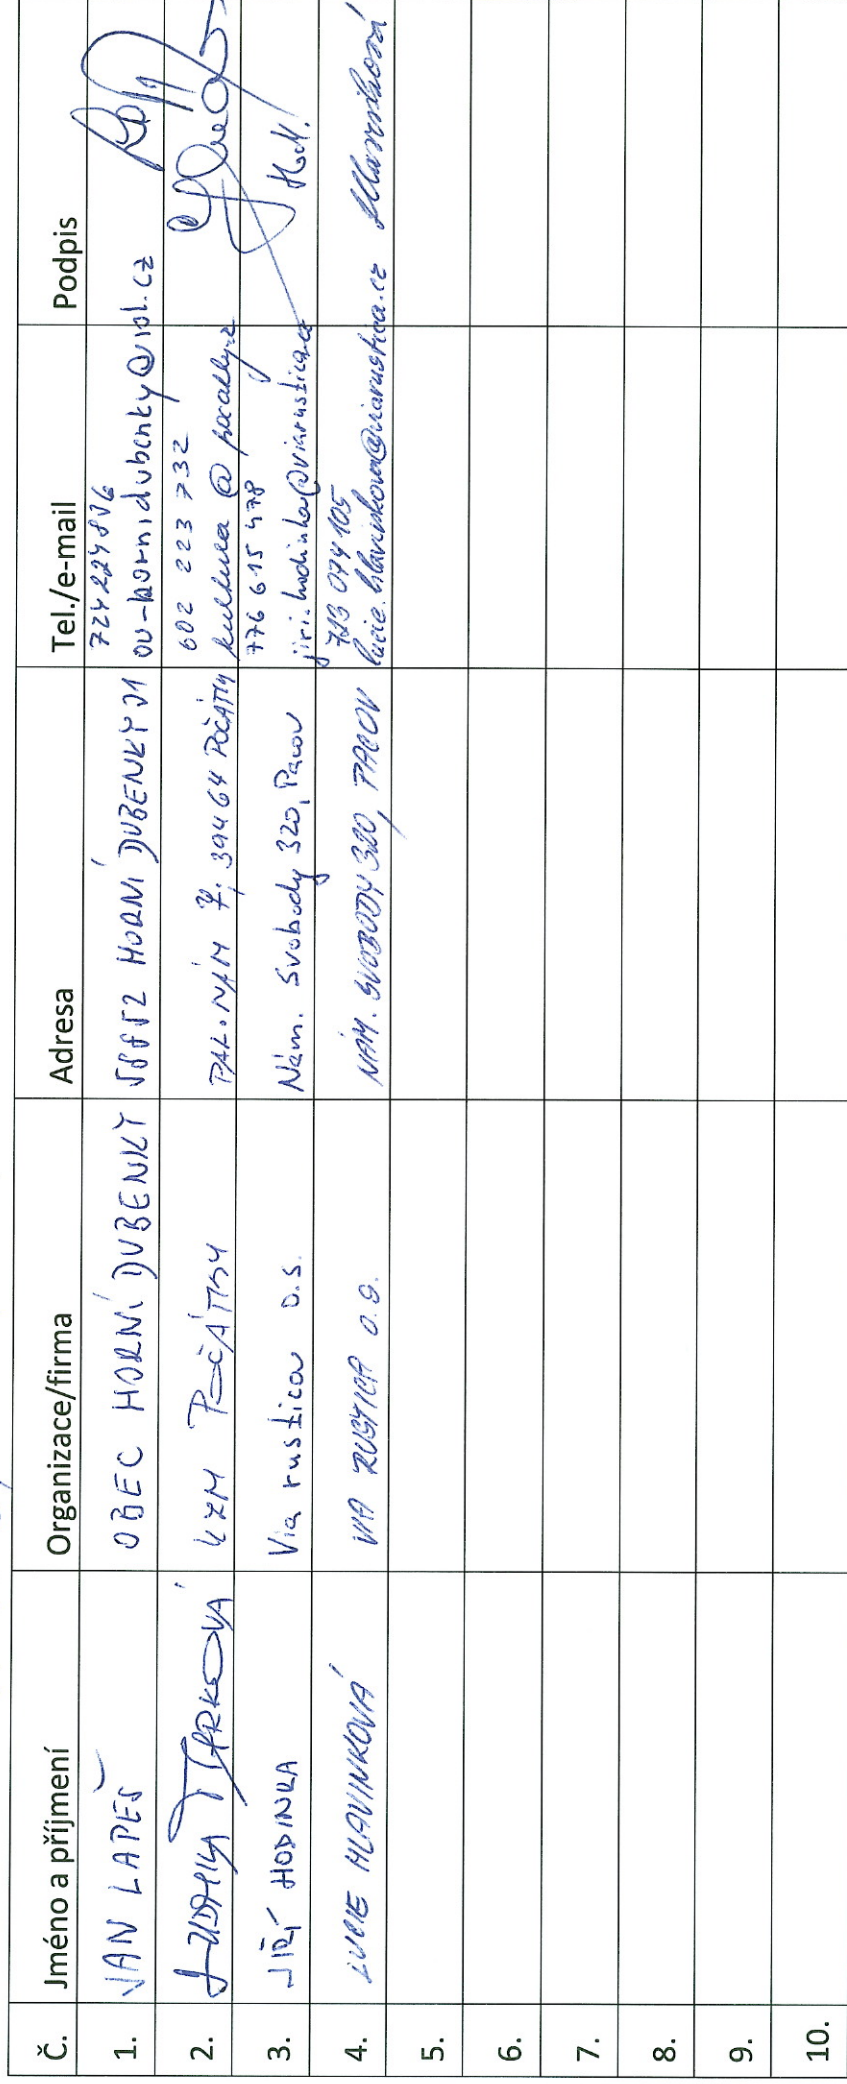 Č. Jméno a příjmení Organizace/firma Adresa Tel./e-mail Podpis
1. JAN LAPEŠ OBEC HORNÍ DUBENKY 58852 HORNÍ DUBENKY 31 724224836
ou-hornidubenky@iol.cz
2. KZM POČÁTKY PAL. NÁM 7, 39464 POČÁTKY 602 223 732
kultura @
3. JIŘÍ HODINKA Via rustica o.s. Nám. Svobody 320, Pacov 776 615 478
jiri.hodinka@viarustica.cz
4. LUCIE HLAVINKOVÁ VIA RUSTICA o.s. NÁM. SVOBODY 320, PACOV 074 105
lucie.hlavinkova@viarustica.cz Hlavinková
5.
6.
7.
8.
9.
10.